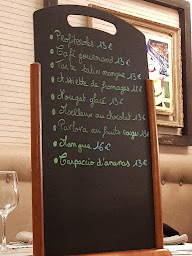 • Profiteroles 13 €
• Café gourmand 13 €
• Tarte tatin mangue 13 €
• Assiette de fromages 12 €
• Nougat glacé 13 €
• Moelleux au chocolat 13 €
• Pavlova au fruits rouges 13 €
• Mangue 16 €
• Carpaccio d'ananas 13 €